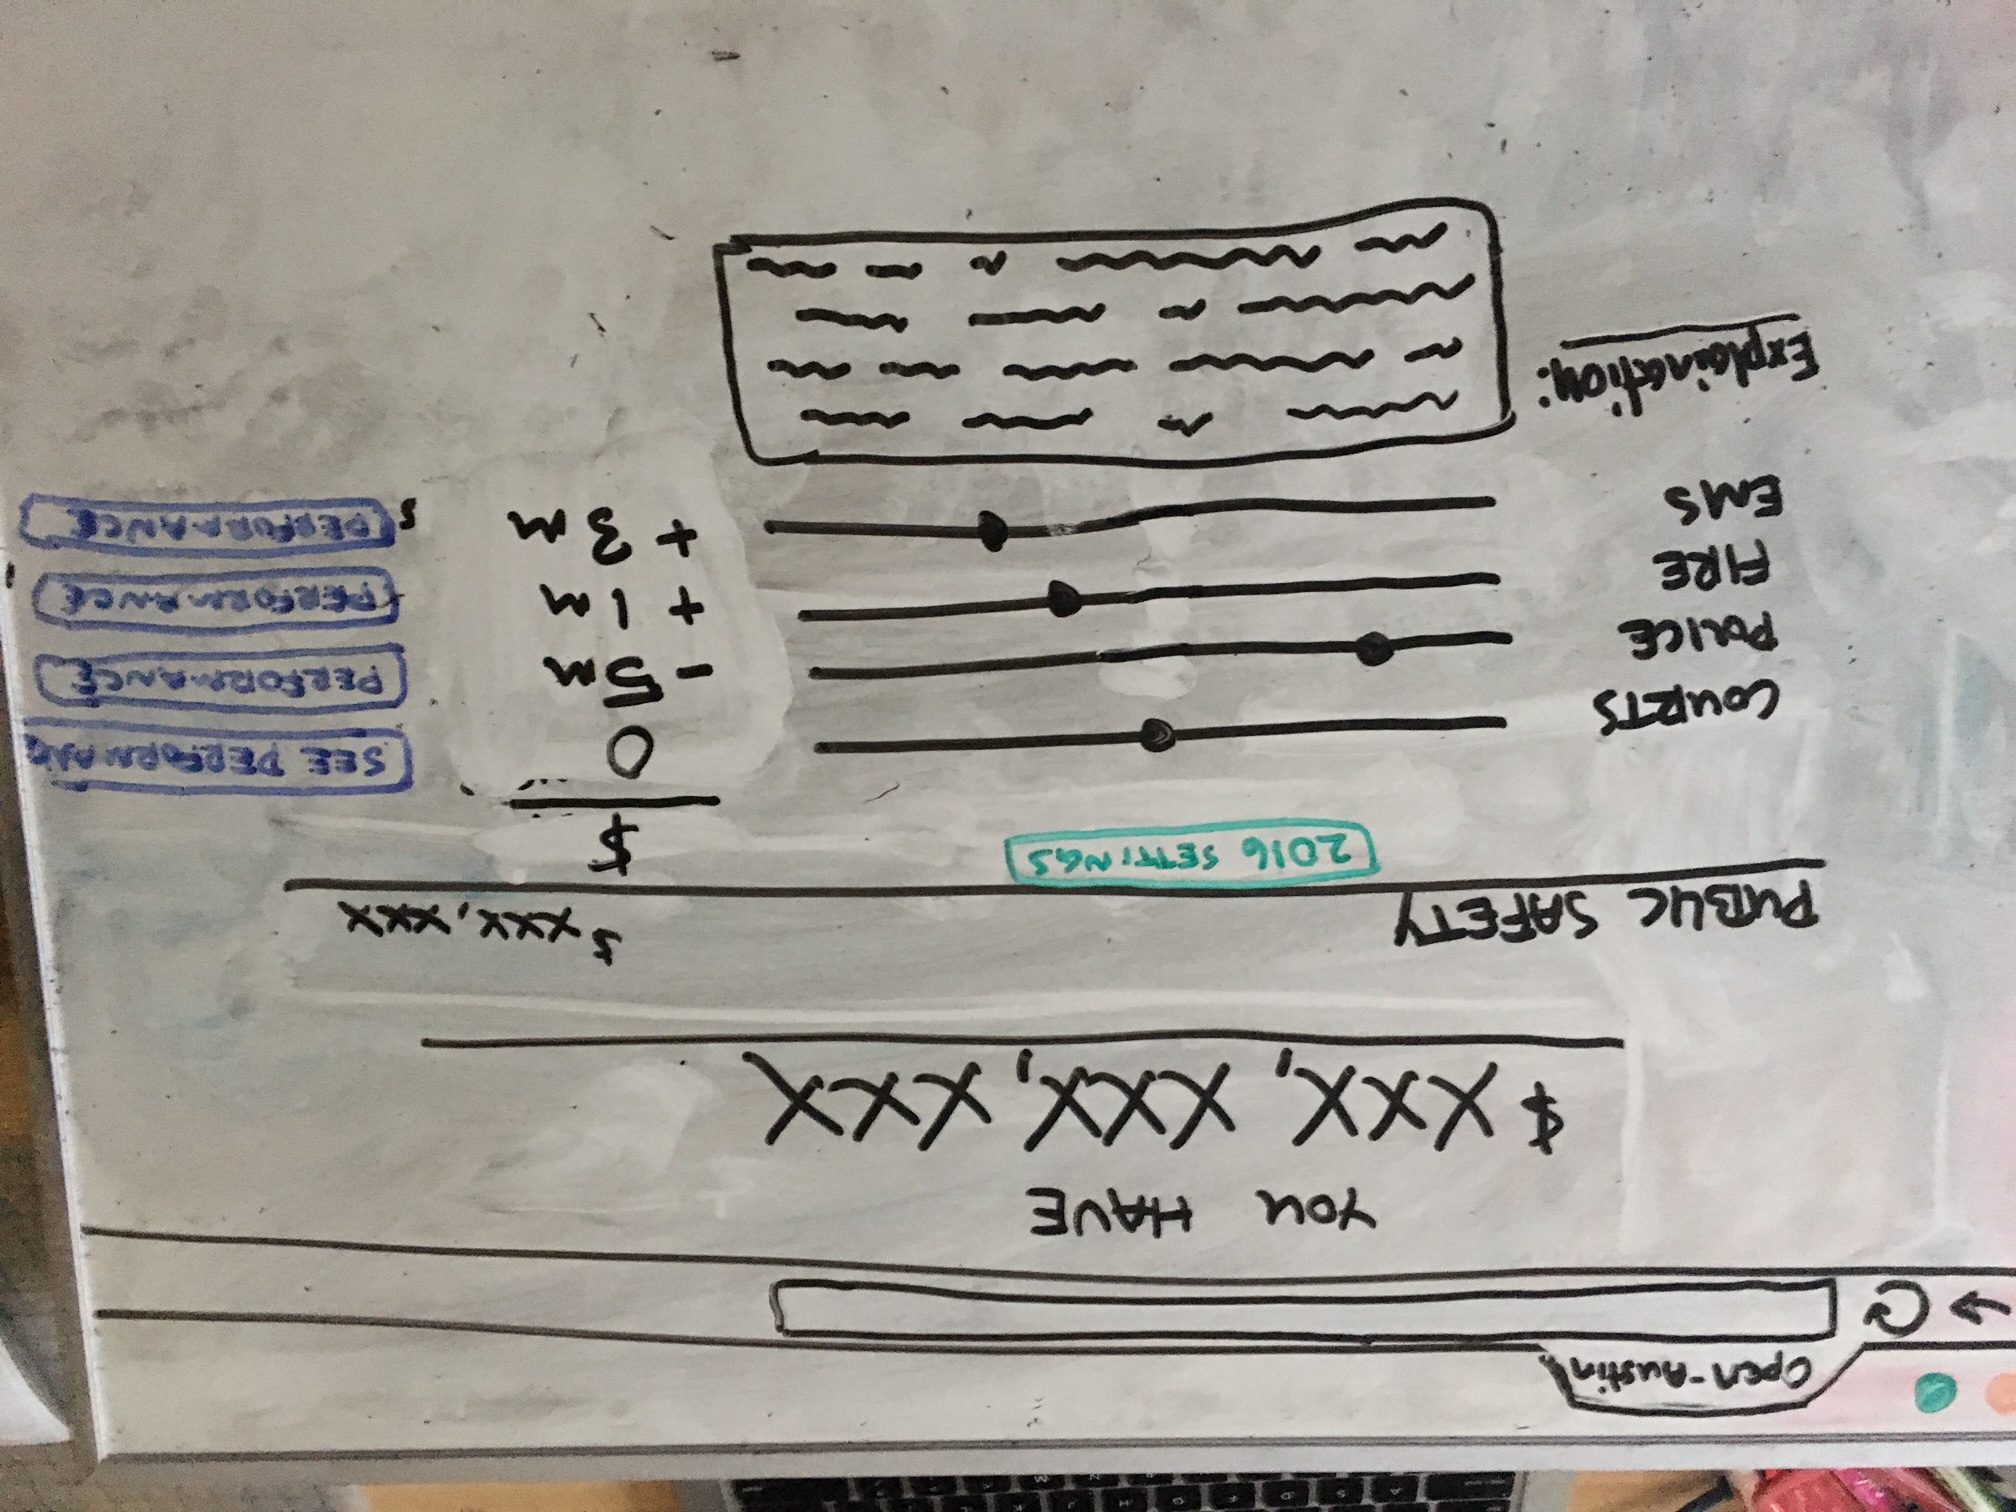 Open-Austin
YOU HAVE
$XXX,XXX,XXX
PUBLIC SAFETY $XXX,XXX
2016 SETTINGS
$
COURTS 0 SEE PERFORMANCE
POLICE -5M PERFORMANCE
FIRE +1M PERFORMANCE
EMS +3M PERFORMANCE
Explaination: